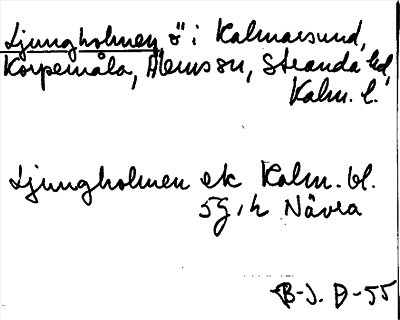 Ljungholmen, ö i Kalmarsund,
Korpemåla, Ålemss sn, Stranda hd,
Kalm. l.
Ljungholmen ek Kalm. bl.
5g, h Nävra
B-J. D-55